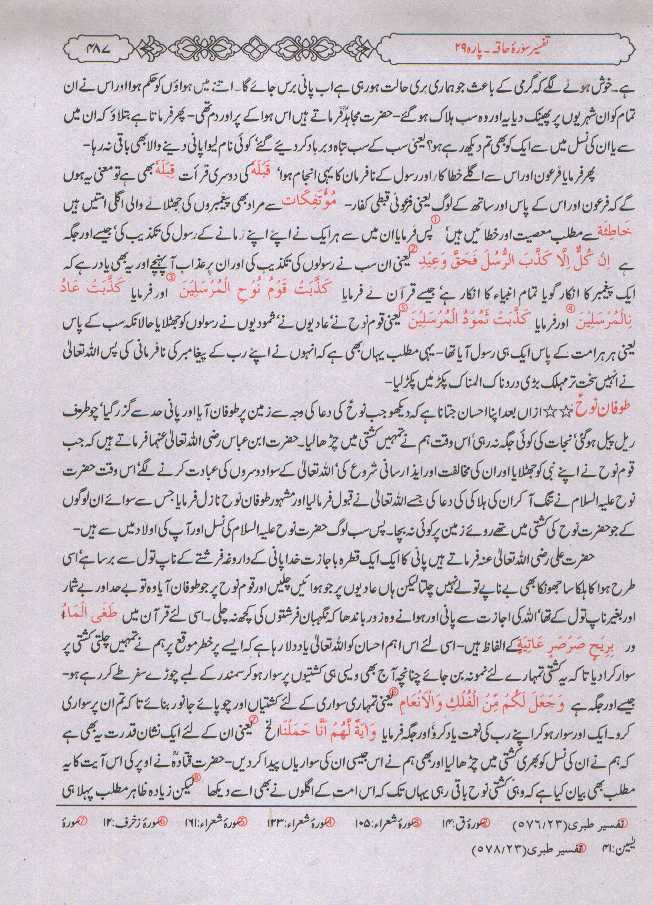 تفسیر سورۂ حاقہ۔ پارہ ۲۹
۴۸۷
ہے۔ خوش ہونے لگے کہ گرمی کے باعث جو ہماری بری حالت ہو رہی ہے اب پانی برس جائے گا۔ اتنے میں ہواؤں کو حکم ہوا اور اس نے ان
تمام کو ان شہریوں پر پھینک دیا یہ اور وہ سب ہلاک ہو گئے۔ حضرت مجاہدؒ فرماتے ہیں اس ہوا کے پر اور دم تھی۔ پھر فرماتا ہے بتلاؤ کہ ان میں
سے یا ان کی نسل میں سے ایک کو بھی تم دیکھ رہے ہو؟ یعنی سب کے سب تباہ و برباد کر دیئے گئے' کوئی نام لیوا پانی دینے والا بھی باقی نہ رہا۔
پھر فرمایا فرعون اور اس سے اگلے خطا کار اور رسول کے نافرمان کا یہی انجام ہوا' قَبْلَهُ کی دوسری قرأت قِبَلَهُ بھی ہے تو معنی یہ ہوں
گے کہ فرعون اور اس کے پاس اور ساتھ کے لوگ یعنی فرعونی قبطی کفار۔ مُؤْتَفِكَات سے مراد بھی پیغمبروں کی جھٹلانے والی اگلی امتیں ہیں
خاطئة سے مطلب معصیت اور خطائیں ہیں' ① پس فرمایا ان میں سے ہر ایک نے اپنے اپنے زمانے کے رسول کی تکذیب کی' جیسے اور جگہ
ہے اِنْ كُلٌّ اِلَّا كَذَّبَ الرُّسُلَ فَحَقَّ وَعِيْدِ ② یعنی ان سب نے رسولوں کی تکذیب کی اور ان پر عذاب آ پہنچے اور یہ بھی یاد رہے کہ
ایک پیغمبر کا انکار گویا تمام انبیاء کا انکار ہے' جیسے قرآن نے فرمایا كَذَّبَتْ قَوْمُ نُوْحِ الْمُرْسَلِيْنَ ③ اور فرمایا كَذَّبَتْ عَادُ
نِالْمُرْسَلِيْنَ ④ اور فرمایا كَذَّبَتْ ثَمُوْدُ الْمُرْسَلِيْنَ ⑤ یعنی قوم نوح نے' عادیوں نے' ثمودیوں نے رسولوں کو جھٹلایا حالانکہ سب کے پاس
یعنی ہر ہر امت کے پاس ایک ہی رسول آیا تھا۔ یہی مطلب یہاں بھی ہے کہ انہوں نے اپنے رب کے پیغامبر کی نافرمانی کی پس اللہ تعالیٰ
نے انہیں سخت تر مہلک بڑی دردناک المناک پکڑ میں پکڑ لیا۔
طوفان نوحؑ ☆☆ ازاں بعد اپنا احسان جتاتا ہے کہ دیکھو جب نوحؑ کی دعا کی وجہ سے زمین پر طوفان آیا اور پانی حد سے گزر گیا' چوطرف
ریل پیل ہو گئی' نجات کی کوئی جگہ نہ رہی' اس وقت ہم نے تمہیں کشتی میں چڑھا لیا۔ حضرت ابن عباس رضی اللہ تعالیٰ عنہما فرماتے ہیں کہ جب
قوم نوح نے اپنے نبی کو جھٹلایا اور ان کی مخالفت اور ایذا رسانی شروع کی' اللہ تعالیٰ کے سوا دوسروں کی عبادت کرنے لگے' اس وقت حضرت
نوح علیہ السلام نے تنگ آ کر ان کی ہلاکی کی دعا کی جسے اللہ تعالیٰ نے قبول فرما لیا اور مشہور طوفان نوح نازل فرمایا جس سے سوائے ان لوگوں
کے جو حضرت نوح کی کشتی میں تھے روئے زمین پر کوئی نہ بچا۔ پس سب لوگ حضرت نوح علیہ السلام کی نسل اور آپ کی اولاد میں سے ہیں۔
حضرت علی رضی اللہ تعالیٰ عنہ فرماتے ہیں پانی کا ایک ایک قطرہ بہ اجازت خدا پانی کے داروغہ فرشتے کے ناپ تول سے برستا ہے' اسی
طرح ہوا کا ہلکا سا جھونکا بھی بے ناپے تولے نہیں چلتا لیکن ہاں عادیوں پر جو ہوائیں چلیں اور قوم نوح پر جو طوفان آیا وہ تو بے حد اور بے شمار
اور بغیر ناپ تول کے تھا' اللہ کی اجازت سے پانی اور ہوا نے وہ زور باندھا کہ نگہبان فرشتوں کی کچھ نہ چلی۔ اسی لئے قرآن میں طَغَى الْمَاءُ
ور بِرِيْحٍ صَرْصَرٍ عَاتِيَةٍ کے الفاظ ہیں۔ اسی لئے اس اہم احسان کو اللہ تعالیٰ یاد دلا رہا ہے کہ ایسے پر خطر موقع پر ہم نے تمہیں چلتی کشتی پر
سوار کرا دیا تا کہ یہ کشتی تمہارے لئے نمونہ بن جائے چنانچہ آج بھی ویسی ہی کشتیوں پر سوار ہو کر سمندر کے لمبے چوڑے سفر طے کر رہے ہو۔
جیسے اور جگہ ہے وَجَعَلَ لَكُمْ مِّنَ الْفُلْكِ وَالْاَنْعَامِ ⑥ یعنی تمہاری سواری کے لئے کشتیاں اور چوپائے جانور بنائے تا کہ تم ان پر سواری
کرو۔ ایک اور سوار ہو کر اپنے رب کی نعمت یاد کرو' اور جگہ فرمایا وَاٰيَةٌ لَّهُمْ اَنَّا حَمَلْنَا الخ ⑦ یعنی ان کے لئے ایک نشان قدرت یہ بھی ہے
کہ ہم نے ان کی نسل کو بھری کشتی میں چڑھا لیا اور بھی ہم نے اس جیسی ان کی سواریاں پیدا کر دیں۔ حضرت قتادہؒ نے اوپر کی اس آیت کا یہ
مطلب بھی بیان کیا ہے کہ وہی کشتی نوح باقی رہی یہاں تک کہ اس امت کے اگلوں نے بھی اسے دیکھا ⑧ لیکن زیادہ ظاہر مطلب پہلا ہی
① تفسیر طبری (۵۷۶/۲۳) ② سورۂ ق: ۱۴ ③ سورۂ شعراء: ۱۰۵ ④ سورۂ شعراء: ۱۲۳ ⑤ سورۂ شعراء: ۱۶۱ ⑥ سورۂ زخرف: ۱۲ ⑦ سورۂ
یٰسین: ۴۱ ⑧ تفسیر طبری (۵۷۸/۲۳)